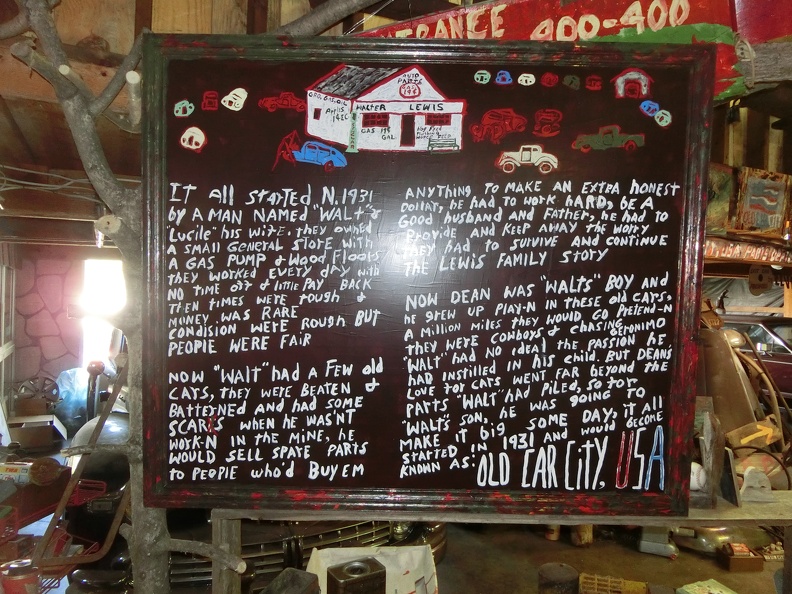 TRANCE 400-400
AUTO
PARTS
GAS 19¢
GAS OIL
14¢
WALTER LEWIS
GAS 19¢
GAL
IT All STARTED N.1931
by A MAN NAMED "WALT" &
"Lucile" his wife, they owned
A SMALL GENERAL STORE WITH
A GAS PUMP & Wood Floors
they WORKED EVERY DAY with
NO TIME off & little PAY BACK
THEN TIMES WERE tough &
MONEY WAS RARE
CONDISION WERE ROUGH BUT
PEOPLE WERE FAIR
NOW "WALT" HAD A FEW old
CARS, THEY WERE BEATEN &
BATTERNED AND HAD SOME
SCARES WHEN HE WAS'NT
WORK-N IN THE MINE, HE
WOULD SELL SPATE PARTS
to PEOPLE who'd BUY EM
ANYTHING TO MAKE AN EXTRA HONEST
DOLLAR, HE HAD TO WORK HARD, BE A
GOOD HUSBAND AND FATHER, HE HAD TO
PROVIDE AND KEEP AWAY THE WORRY
THEY HAD TO SURVIVE AND CONTINUE
THE LEWIS FAMILY STORY
NOW DEAN WAS "WALTS" BOY AND
he GREW UP PLAY-N IN THESE old CARS,
A MILLION MILES THEY WOULD GO PRETEND-N
THEY WERE COWBOYS & CHASING GERONIMO
"WALT" HAD NO IDEAL THE PASSION HE
HAD INSTILLED IN his CHILD. BUT DEANS
LOVE FOR CARS WENT FAR BEYOND THE
PARTS "WALT" HAD PILED, SO FOR
"WALT'S SON, HE WAS GOING TO
MAKE IT BIG SOME DAY, IT All
STARTED IN 1931 AND WOULD BECOME
KNOWN AS: OLD CAR CITY, USA